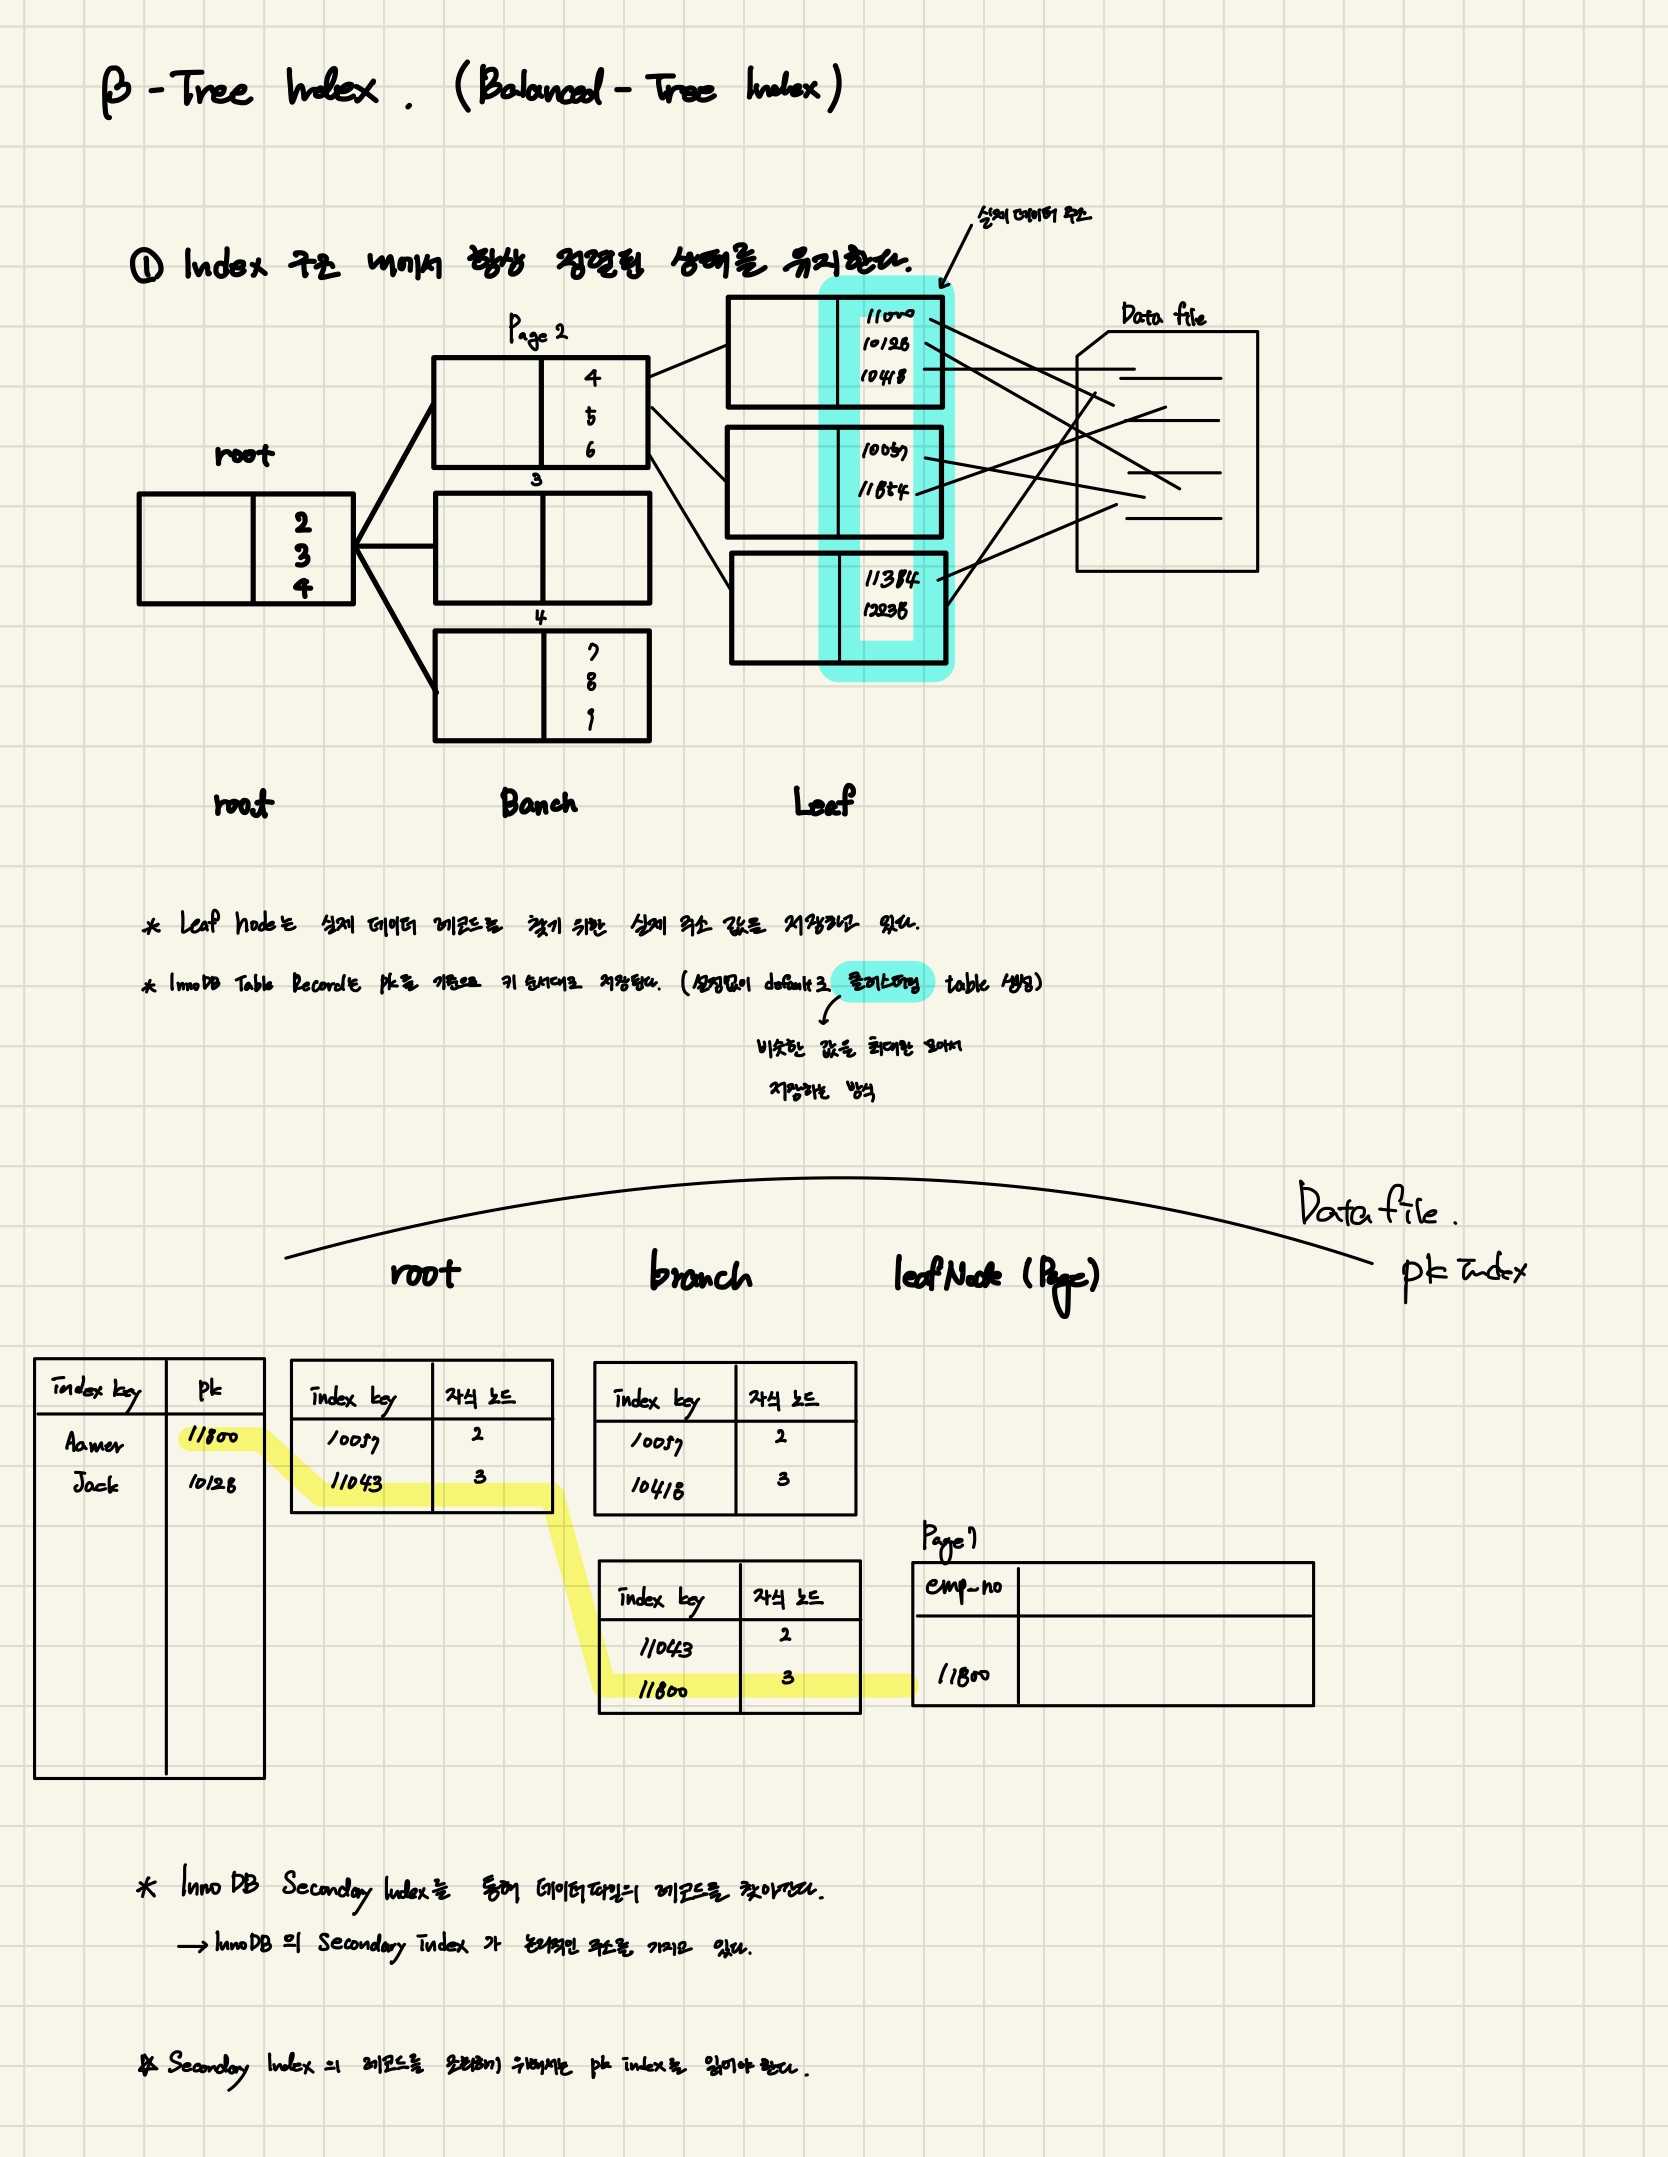 B-Tree Index. (Balanced-Tree Index)
실제 데이터 주소
① Index 구조 내에서 항상 정렬된 상태를 유지한다.
Page 2
4
5
6
3
4
7
8
9
root
2
3
4
11000
10128
10418
10057
11854
11384
12238
Data file
root
Banch
Leaf
* Leaf node는 실제 데이터 레코드를 찾기 위한 실제 주소 값을 저장하고 있다.
* InnoDB Table Record는 pk를 기준으로 키 순서대로 저장된다. (설정없이 default로 클러스터링 table 생성)
비슷한 값을 최대한 모아서
저장하는 방식
Data file.
root branch leafNode (Page) pk index
index key pk
Aamer 11800
Jack 10128
index key 자식 노드
10057 2
11043 3
index key 자식 노드
10057 2
10418 3
index key 자식 노드
11043 2
11800 3
Page7
emp-no
11800
* Inno DB Secondary Index를 통해 데이터파일의 레코드를 찾아간다.
→ InnoDB 의 Secondary index 가 논리적인 주소를 가지고 있다.
* Secondary Index 의 레코드를 조회하기 위해서는 pk index를 읽어야 한다.